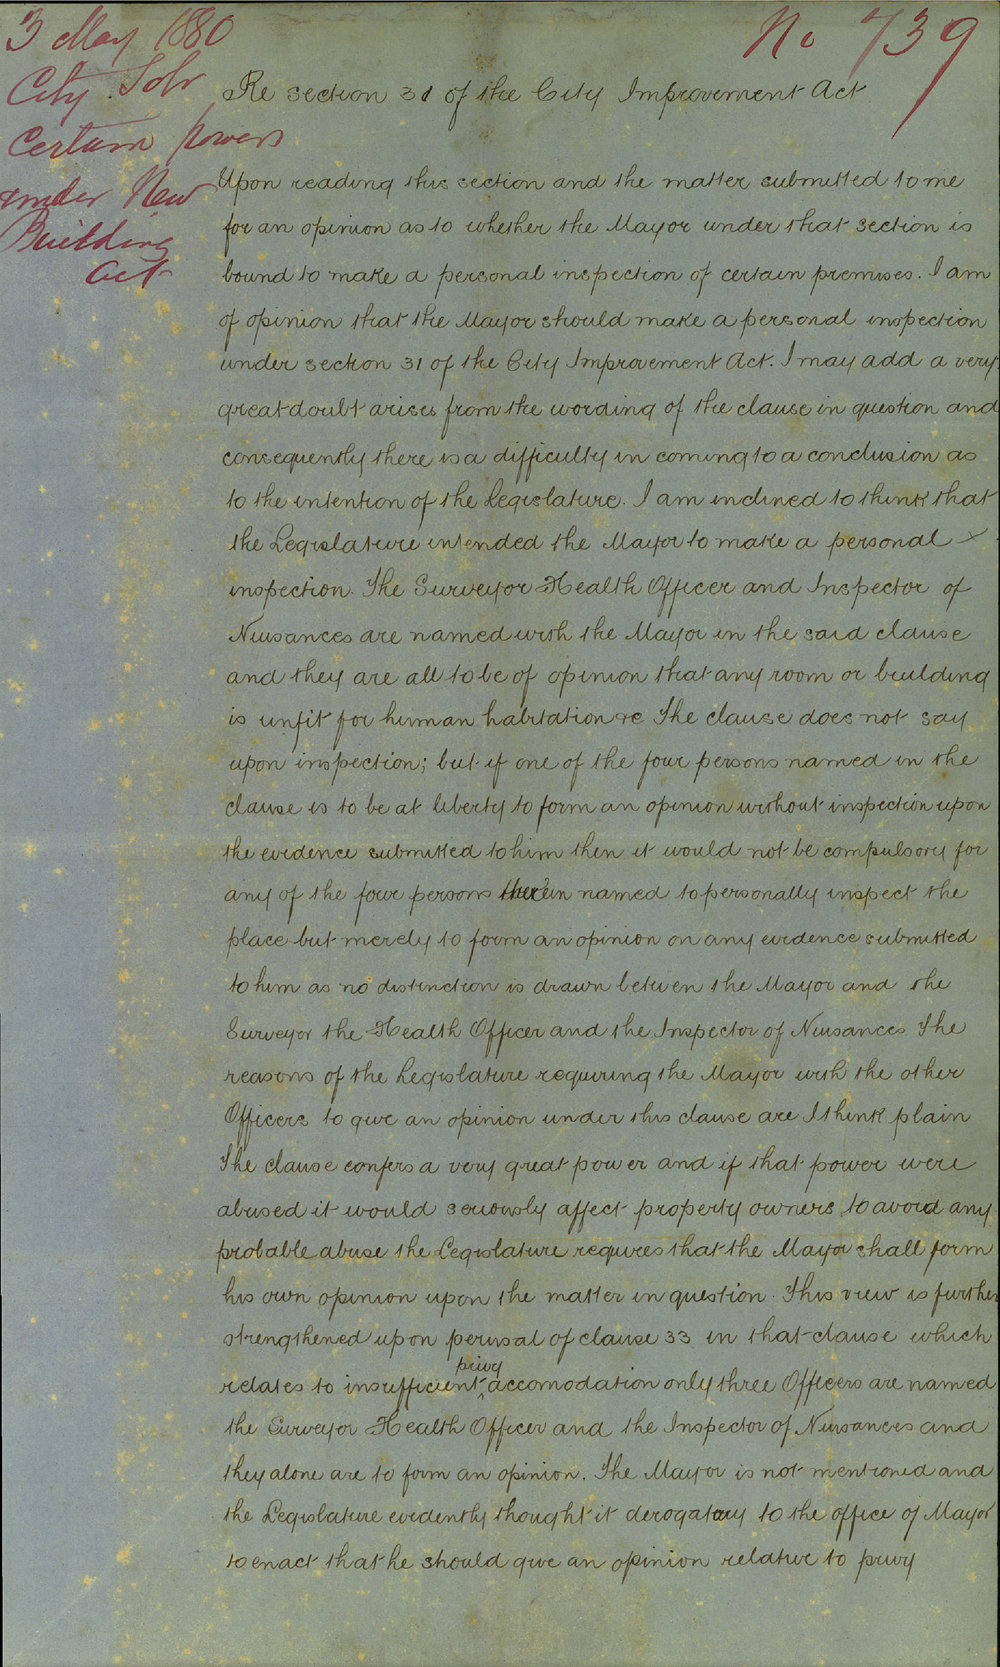 3 May 1880
City Solr
Certain powers
under New
Building
Act
No 739
Re section 31 of the City Improvement Act
Upon reading this section and the matter submitted to me
for an opinion as to whether the Mayor under that section is
bound to make a personal inspection of certain premises. I am
of opinion that the Mayor should make a personal inspection
under section 31 of the City Improvement Act. I may add a very
great doubt arises from the wording of the clause in question and
consequently there is a difficulty in coming to a conclusion as
to the intention of the Legislature. I am inclined to think that
the Legislature intended the Mayor to make a personal ×
inspection. The Surveyor Health Officer and Inspector of
Nuisances are named with the Mayor in the said clause
and they are all to be of opinion that any room or building
is unfit for human habitation &c The clause does not say
upon inspection; but if one of the four persons named in the
clause is to be at liberty to form an opinion without inspection upon
the evidence submitted to him then it would not be compulsory for
any of the four persons therein named to personally inspect the
place but merely to form an opinion on any evidence submitted
to him as no distinction is drawn between the Mayor and the
Surveyor the Health Officer and the Inspector of Nuisances The
reasons of the Legislature requiring the Mayor with the other
Officers to give an opinion under this clause are I think plain
The clause confers a very great power and if that power were
abused it would seriously affect property owners to avoid any
probable abuse the Legislature requires that the Mayor shall form
his own opinion upon the matter in question. This view is further
strengthened upon perusal of clause 33 in that clause which
relates to insufficient privy accomodation only three Officers are named
the Surveyor Health Officer and the Inspector of Nuisances and
they alone are to form an opinion. The Mayor is not mentioned and
the Legislature evidently thought it derogatory to the office of Mayor
to enact that he should give an opinion relative to privy